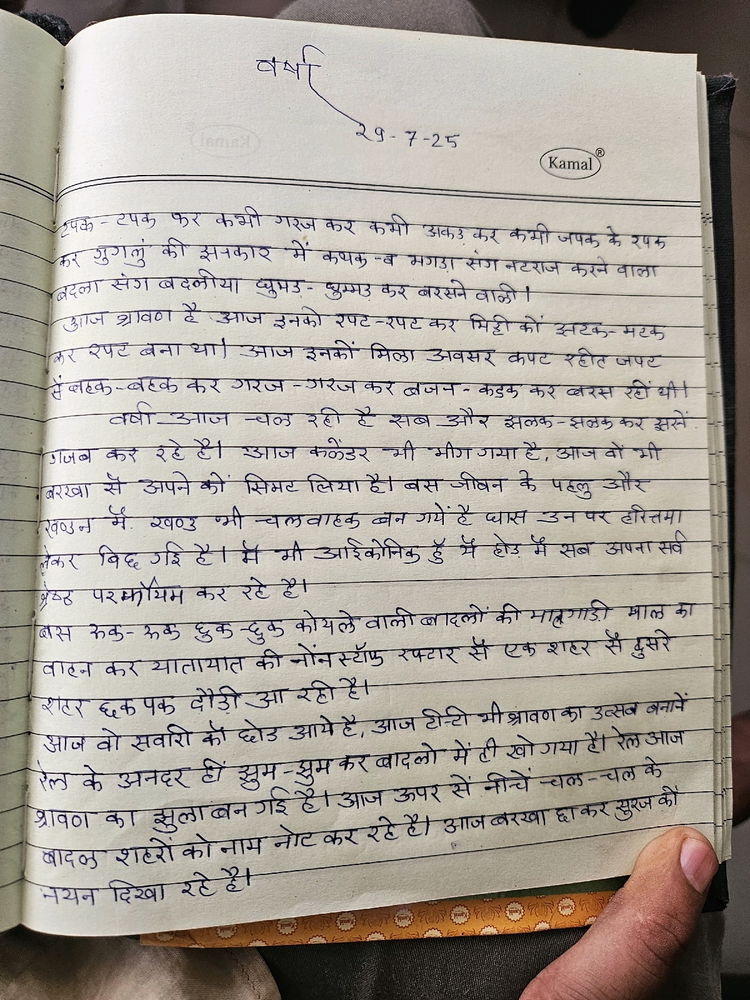 वर्षा
29-7-25
Kamal®
टपक-टपक कर कभी गरज कर कभी अकड कर कभी जपक के रपक
कर गुगलुं की झनकार में कथक-व भगडा संग नटराज करने वाला
बदला संग बदलीया घुमड-घुम्मड कर बरसने वाली।
आज श्रावण है आज इनको रपट-रपट कर मिट्टी कों झटक-मटक
कर रपट बना था। आज इनकों मिला अवसर कपट रहीत जपट
सें बहक-बहक कर गरज-गरज कर बजन-कडक कर बरस रहीं थी।
वर्षा आज चल रही है सब और झलक-झलक कर इसनें
गजब कर रहे है। आज कलेंडर भी भीग गया है, आज वों भी
बरखा सें अपने कों सिमट लिया है। बस जीवन के पहलु और
खण्डन में खण्ड भी चलवाहक बन गयें है घास उन पर हरितमा
लेकर बिछ गई है। में भी आईकोनिक हुँ यें होड में सब अपना सर्व
श्रेष्ठ परफोयिम कर रहे है।
बस रूक-रूक छुक-छुक कोयले वाली बादलों की मालगाडी माल का
वाहन कर यातायात की नोंन स्टॉफ रफ्टार सें एक शहर सें दुसरे
शहर छक पक दौड़ी आ रही है।
आज वो सवारी कों छोड आये है, आज टीन्टी भी श्रावण का उत्सव बनानें
रेल के अनदर हीं झुम-झुम कर बादलो में ही खो गया है। रेल आज
श्रावण का झुला बन गई है। आज ऊपर सें नीचें चल-चल के
बादल शहरों को नाम नोट कर रहे है। आज बरखा छा कर सुरज कों
नयन दिखा रहे है।